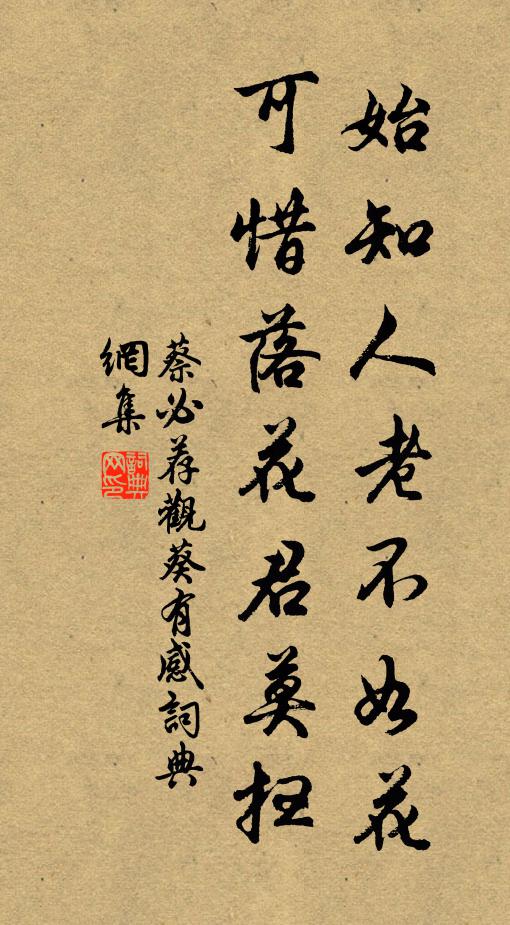 始知人老不如花
可惜落花君莫扫
蔡必荐觀葵有感詞典
網集
詞典
网印